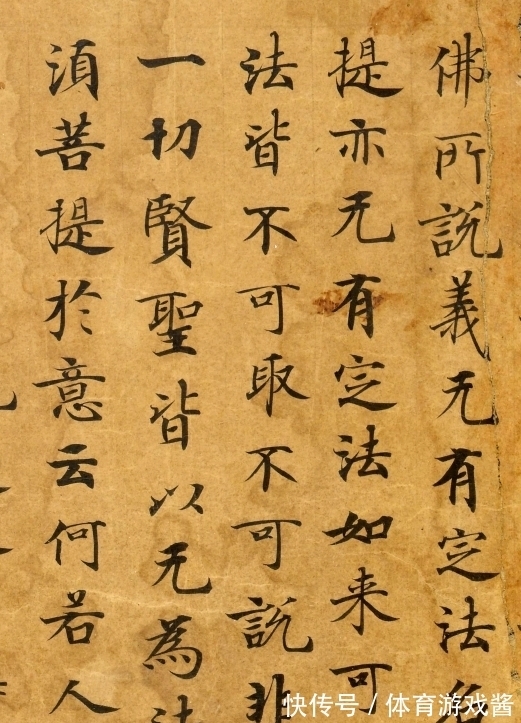 佛所說義无有定法名
提亦无有定法如来可
法皆不可取不可說非
一切賢聖皆以无為法
須菩提於意云何若人
快传号 / 体育游戏酱